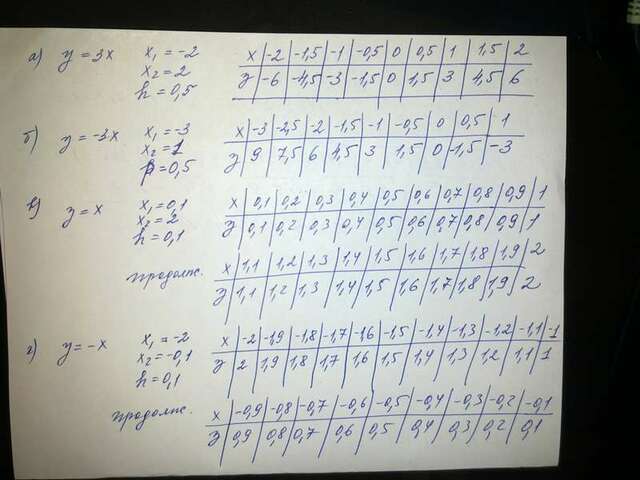 а) y = 3x x₁ = -2 x -2 -1,5 -1 -0,5 0 0,5 1 1,5 2
x₂ = 2 y -6 -4,5 -3 -1,5 0 1,5 3 4,5 6
h = 0,5
б) y = -3x x₁ = -3 x -3 -2,5 -2 -1,5 -1 -0,5 0 0,5 1
x₂ = 1 y 9 7,5 6 4,5 3 1,5 0 -1,5 -3
h = 0,5
в) y = x x₁ = 0,1 x 0,1 0,2 0,3 0,4 0,5 0,6 0,7 0,8 0,9 1
x₂ = 2 y 0,1 0,2 0,3 0,4 0,5 0,6 0,7 0,8 0,9 1
h = 0,1
продолж. x 1,1 1,2 1,3 1,4 1,5 1,6 1,7 1,8 1,9 2
y 1,1 1,2 1,3 1,4 1,5 1,6 1,7 1,8 1,9 2
г) y = -x x₁ = -2 x -2 -1,9 -1,8 -1,7 -1,6 -1,5 -1,4 -1,3 -1,2 -1,1 -1
x₂ = -0,1 y 2 1,9 1,8 1,7 1,6 1,5 1,4 1,3 1,2 1,1 1
h = 0,1
продолж. x -0,9 -0,8 -0,7 -0,6 -0,5 -0,4 -0,3 -0,2 -0,1
y 0,9 0,8 0,7 0,6 0,5 0,4 0,3 0,2 0,1